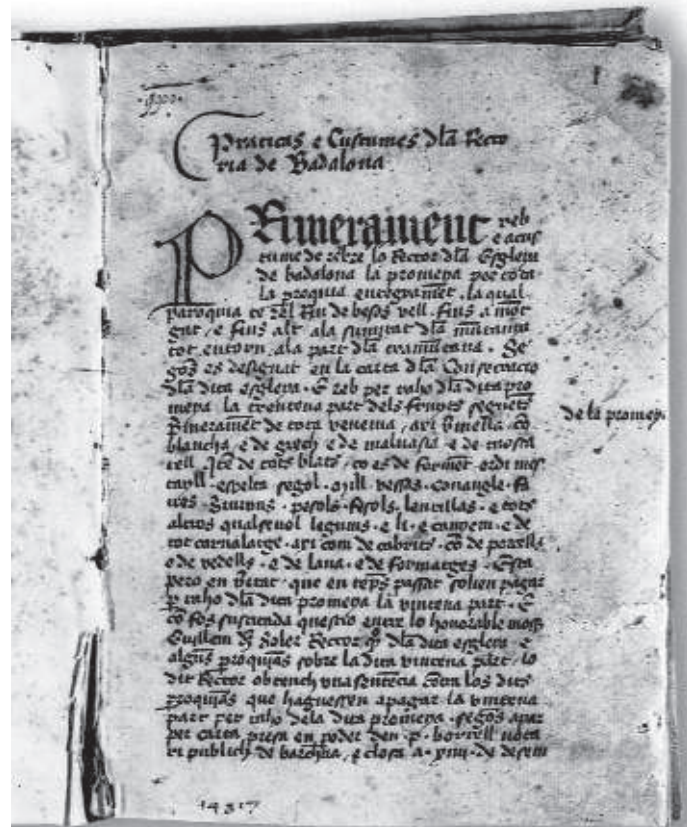 Praticas e Custumes dla Recto
ria de Badalona
PRimerament reb
e acus
tume de rebre lo Rector dla Esgleya
de badalona la promeya per tota
la proquia entegramet. la qual
paroquia te del Riu de besos vell. fins a mot
gat, e fins alt ala sumitat dla mutanya
tot entorn, ala part dla tramutana. Se
gos es designat en la carta dla Consecracio
dla dita esgleya. E reb per raho dla dita pro
meya la trentena part dels fruyts seguets
Primerament de tota venema, axi vmella co
blancha, e de grech e de malvasia e de moscat
vell. Ite de tots blats, co es de formet ordi mes
tayll. espelta segol. mill vessas. fa
ves. Ziurons. pesols. fesols. lentillas. e tots
altros qualsevol legums. e li. e canyem. e de
tot carnalatge. axi com de cabrits. co de porcells
o de vedells. e de lana. e de formatges. Esta
pero en vitat. que en teps passat solien pagar
p raho dla dita promeya la vintena part. E
co fos suscitada questio entre lo honorable mosse
Guillem Soler Rector dla dita esgleya. e
alguns proquias sobre la dita vintena part. lo
dit Rector obtench vna sentecia cotra los dits
proquias que haguessen apagar la vintena
part per raho dela dita promeya. segos apar
per carta presa en poder den. p. borrell nota
ri publich de barcna, e closa a. xviii. de desem
de la promey.
1437